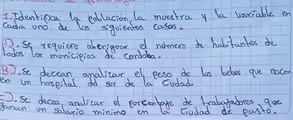 1. Identifica la población, la muestra y la variable en
cada uno de los siguientes casos.
A). Se requiere aberiguar el número de habitantes de
todos los municipios de Cordoba.
B). Se decean analizar el peso de los bebes que nacen
en un hospital del sur de la Ciudad.
C). Se decea analizar el porcentaje de trabajadores que
ganan un salario minimo en la Ciudad de pasto.